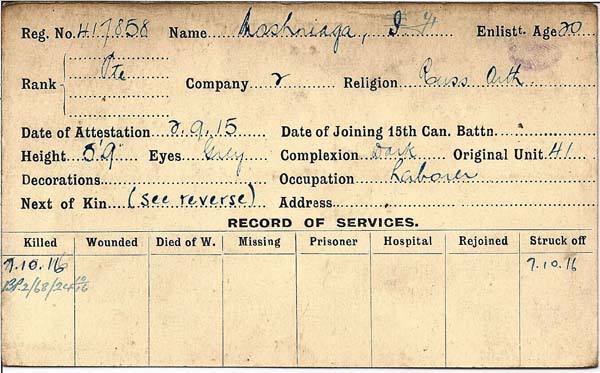 Reg. No. 417858 Name Mashneaga, Enlistt. Age 20
Rank Pte Company 2 Religion Russ Orth
Date of Attestation 2.9.15 Date of Joining 15th Can. Battn.
Height 5'9" Eyes Grey Complexion Dark Original Unit 41
Decorations Occupation Laborer
Next of Kin (see reverse) Address
RECORD OF SERVICES.
Killed Wounded Died of W. Missing Prisoner Hospital Rejoined Struck off
7.10.16 7.10.16